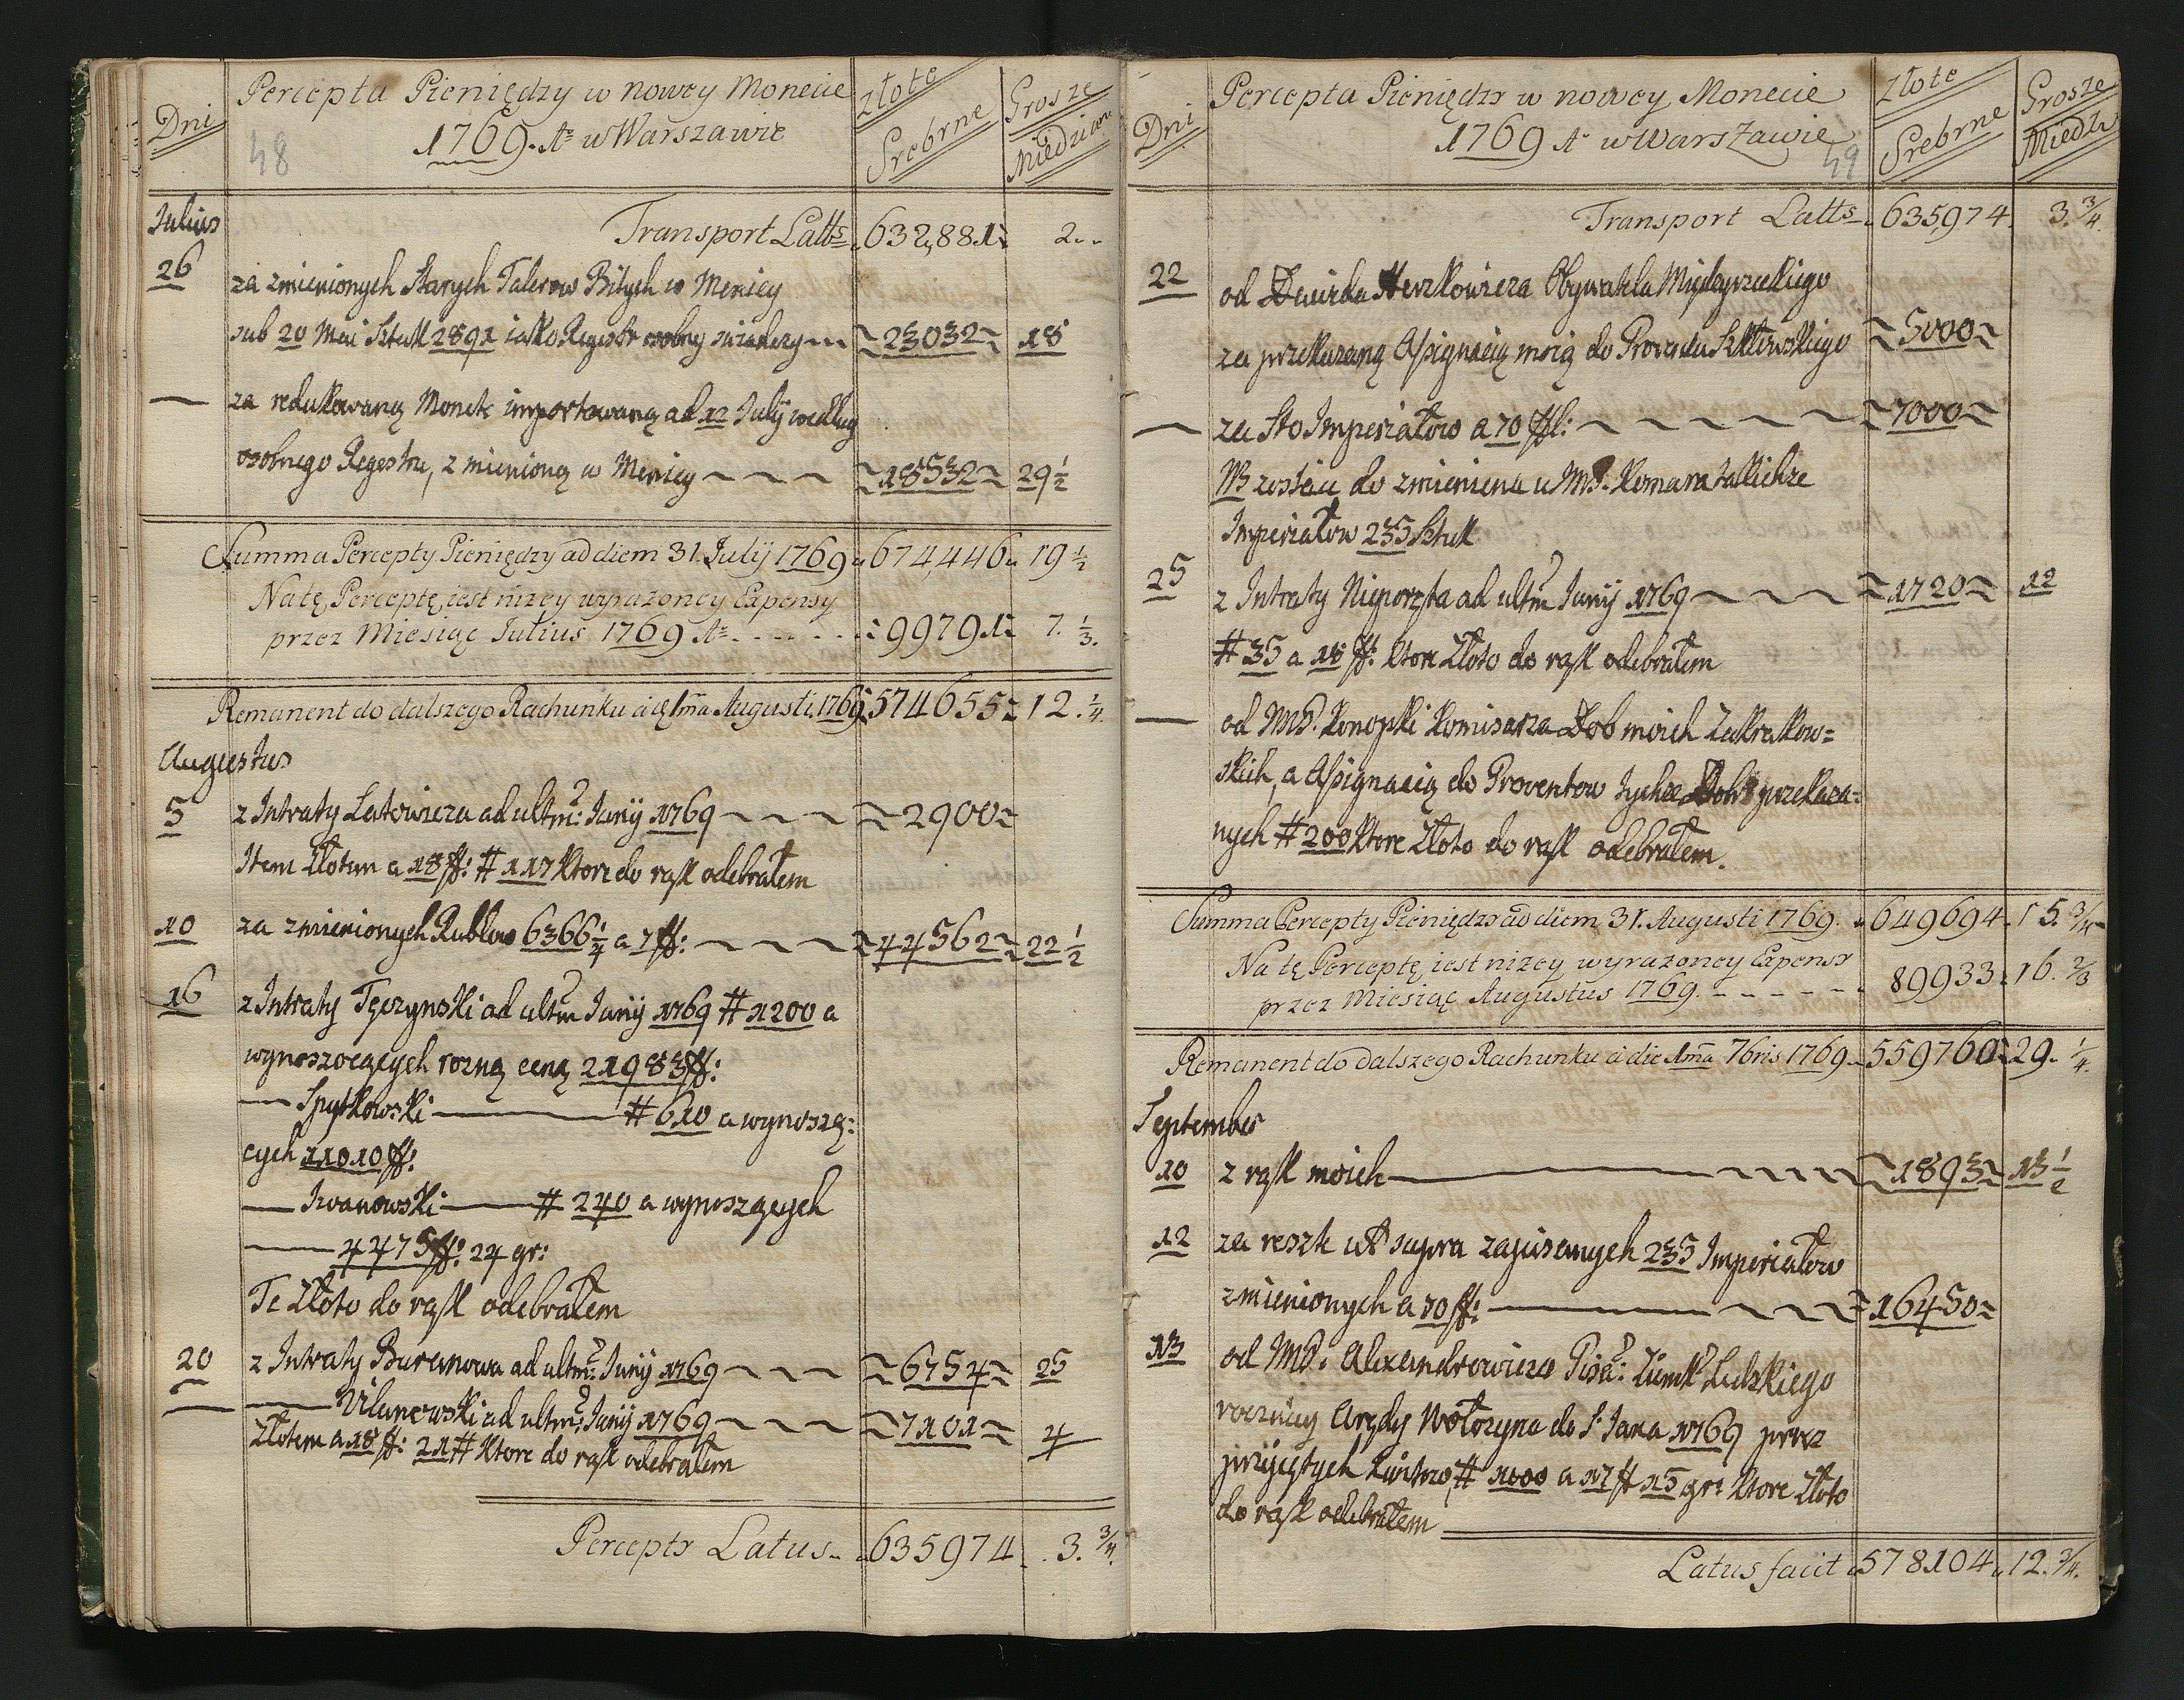 Dni
Percepta Pieniędzy w nowey Monecie
1769. Ao w Warszawie
48
złote
Srebrne
Grosze
Miedziane
Julius
Transport Latts 632,881 2
26
za zmienionych starych Talerow Bitych w Menicy
sub 20 Maii Sztuk 2891 iako Regestr osobny swiadczy 23032 18
— za redukowaną Monetę importowaną ad 12 Julij według
osobnego Regestru, zmienioną w Menicy 18532 29 1/2
Summa Percepty Pieniędzy ad diem 31. July 1769 674,446 19 1/2
Na tę Perceptę iest niżey wyrażoney Expensy
przez Miesiąc Julius 1769 Ao 99791 7. 1/3.
Remanent do dalszego Rachunku à die 1ma Augusti 1769 574655 12. 1/4.
Augustus
5 z Intraty Latowicza ad ultm: Junij 1769 2900
Item Złotem a 18 ff: # 117 ktore do rąk odebrałem
10 za zmienionych Rublow 6366 1/4 a 7 ff: 44562 22 1/2
16 z Intraty Tęczynski ad ultm Junij 1769 # 1200 a
wynoszoących rozną ceną 21983 ff:
— Spytkowski — # 610 a wynoszą=
cych 11010 ff:
— Iwanowski — # 240 a wynoszących
— 4475 ff: 24 gr:
Te Złoto do rąk odebrałem
20 z Intraty Baranowa ad ultm: Junij 1769 6754 25
— Vilanowski ad ultm: Junij 1769 7101 4
Złotem a 18 ff: 21 # ktore do rąk odebrałem
Percepty Latus 635974 3. 3/4.
Dni
Percepta Pieniędzy w nowey Monecie
1769 Ao w Warszawie
49
złote
Srebrne
Grosze
Miedz
Transport Latts 635,974 3. 3/4.
22 od Dawida Herzkowicza Obywatela Międzyrzeckiego
za przekazaną Assignacią moią do Prowentu Szkłowskiego 5000
— za Sto Imperiałow a 70 ff: 7000
NB zostaie do zmieniena u MP. Komara takichże
Imperiałow 235 Sztuk
25 z Intraty Nieporzta ad ultm Junij 1769 1720 12
# 35 a 18 ff: ktore Złoto do rąk odebrałem
— od MP. Konopki Komisarza Dob moich Zakrakow=
skich, a Assignacią do Proventow tychże Dobr przekaza=
nych # 200 ktore Złoto do rąk odebrałem.
Summa Percepty Pieniędzy ad diem 31. Augusti 1769. 649694 15. 3/4
Na tę Perceptę iest niżey wyrażoney Expensy
przez Miesiąc Augustus 1769. 89933 16. 2/3
Remanent do dalszego Rachunku à die 1ma 7bris 1769 559760 29. 1/4.
September
10 z rąk moich 1893 13 1/2
12 za resztę ut supra zapisanych 235 Imperiałow
zmienionych a 70 ff: 16450
13 od MP. Alexandrowicza Pisa: Ziemk Lidzkiego
roczney Arędy Wołożyna do S. Jana 1769 przez
przyiętych # 1000 a 17 ff 15 gr: ktore Złoto
do rąk odebrałem
Latus facit 578104 12. 3/4.